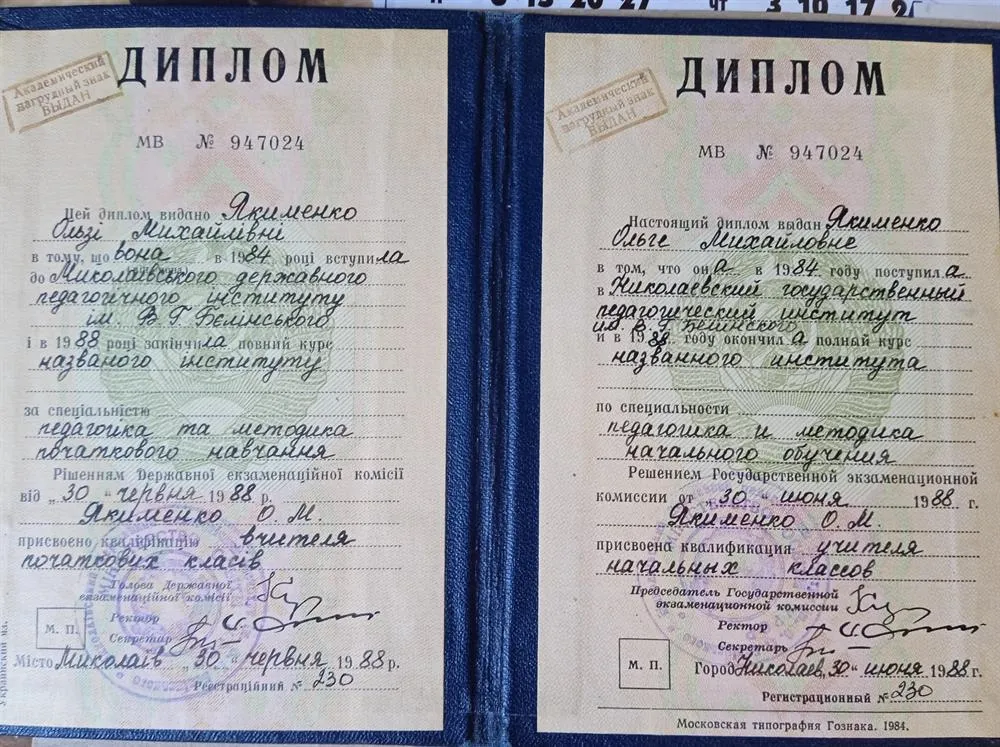 8 13 20 27 чт 3 10 17 2
ДИПЛОМ
Академический
нагрудный знак
ВЫДАН
МВ № 947024
Цей диплом видано Якименко
Ользі Михайлівні
в тому, що вона в 1984 році вступила
до Миколаївського державного
педагогічного інституту
ім. В Г Бєлінського
і в 1988 році закінчила повний курс
названого інституту
за спеціальністю
педагогіка та методика
початкового навчання
Рішенням Державної екзаменаційної комісії
від „30“ червня 1988 р.
Якименко О. М.
присвоєно кваліфікацію вчителя
початкових класів
Голова Державної
екзаменаційної комісії
Ректор
М. П.
Секретар
Місто Миколаїв „30“ червня 1988 р.
Реєстраційний № 230
Украинский яз.
ДИПЛОМ
Академический
нагрудный знак
ВЫДАН
МВ № 947024
Настоящий диплом выдан Якименко
Ольге Михайловне
в том, что она в 1984 году поступила
в Николаевский государственный
педагогический институт
им. В. Г. Белинского
и в 1988 году окончила полный курс
названного института
по специальности
педагогика и методика
начального обучения
Решением Государственной экзаменационной
комиссии от „30“ июня 1988 г.
Якименко О. М.
присвоена квалификация учителя
начальных классов
Председатель Государственной
экзаменационной комиссии
Ректор
Секретарь
М. П.
Город Николаев „30“ июня 1988 г.
Регистрационный № 230
Московская типография Гознака. 1984.